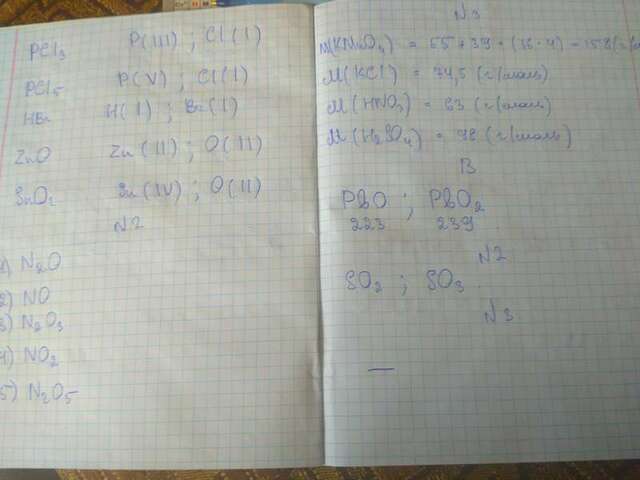 PCl₃ P(III) ; Cl(I)
PCl₅ P(V) ; Cl(I)
HBr H(I) ; Br(I)
ZnO Zn(II) ; O(II)
SnO₂ Sn(IV) ; O(II)
N2
1) N₂O
2) NO
3) N₂O₃
4) NO₂
5) N₂O₅
N3
M(KMnO₄) = 55 + 39 + (16·4) = 158 (г/моль)
M(KCl) = 74,5 (г/моль)
M(HNO₃) = 63 (г/моль)
M(H₂SO₄) = 98 (г/моль)
B
PbO ; PbO₂
223 239
N2
SO₂ ; SO₃
N3
—